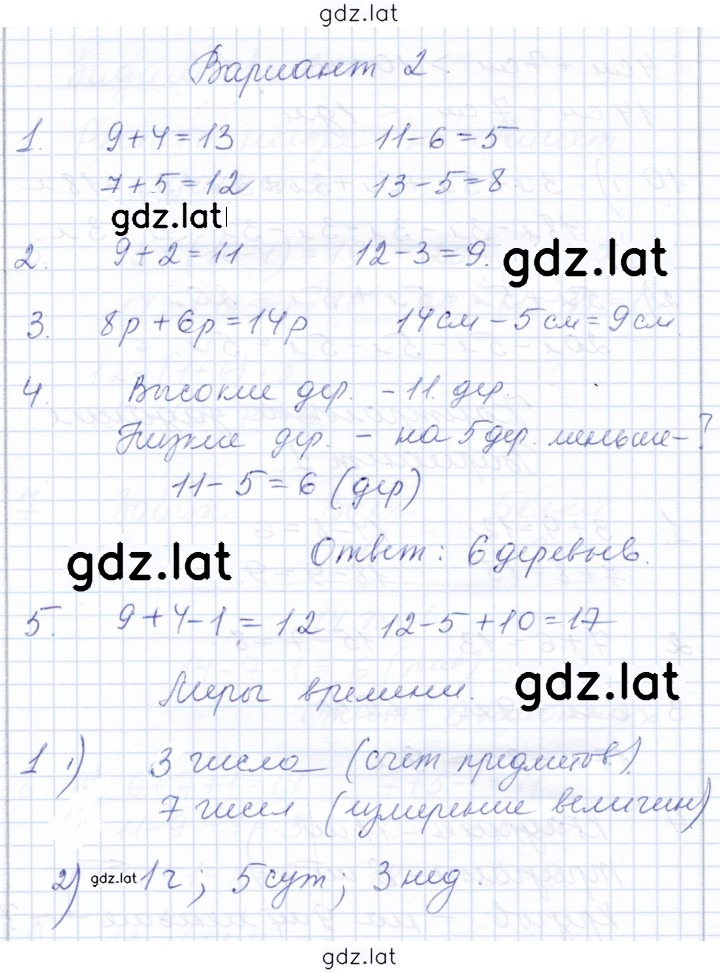 gdz.lat
Вариант 2.
1. 9+4=13 11-6=5
7+5=12 13-5=8
gdz.lat
2. 9+2=11 12-3=9.
gdz.lat
3. 8р+6р=14р 14см-5см=9см.
4. Высокие дер. - 11. дер.
Низкие дер. - на 5 дер. меньше - ?
11-5=6 (дер)
Ответ: 6 деревьев.
gdz.lat
5. 9+4-1=12 12-5+10=17
Меры времени.
gdz.lat
1 1) 3 числа (счёт предметов)
7 чисел (измерение величин)
2) gdz.lat 1 г; 5 сут; 3 нед.
gdz.lat